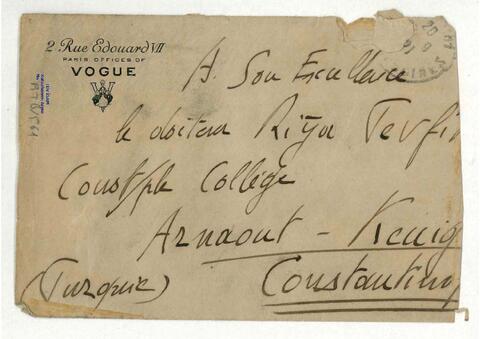 2 Rue Edouard VII
PARIS OFFICES OF
VOGUE
A. Son Excellence
le docteur Riza Tevfi
Constple College
Arnaout - Keuig
(Turquie)
Constantinop
20
9